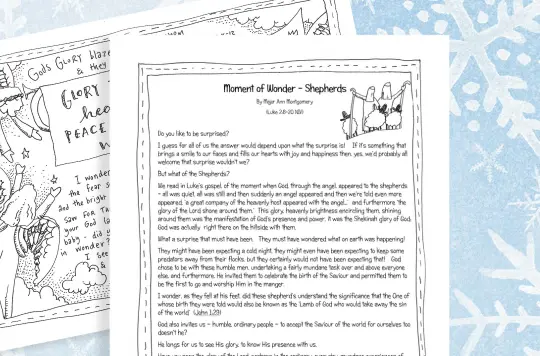 GOD'S GLORY blaze
& they
GLORY
he
PEACE
I wonder
the fear s
and the bright
Saw FOR TH
your God
baby - did
in wonder?
I see
&
Moment of Wonder - Shepherds
By Major Ann Montgomery
(Luke 2:8-20 NIV)
Do you like to be surprised?
I guess for all of us the answer would depend upon what the surprise is! If it's something that
brings a smile to our faces and fills our hearts with joy and happiness then, yes, we'd probably all
welcome that surprise wouldn't we?
But what of the Shepherds?
We read in Luke's gospel, of the moment when God, through the angel, appeared to the shepherds
- all was quiet, all was still and then suddenly an angel appeared and then we're told even more
appeared, 'a great company of the heavenly host appeared with the angel...' and furthermore 'the
glory of the Lord shone around them.' This glory, heavenly brightness encircling them, shining
around them was the manifestation of God's presence and power, it was the Shekinah glory of God;
God was actually right there on the hillside with them.
What a surprise that must have been. They must have wondered what on earth was happening!
They might have been expecting a cold night, they might even have been expecting to keep some
predators away from their flocks, but they certainly would not have been expecting that! God
chose to be with these humble men, undertaking a fairly mundane task over and above everyone
else, and furthermore, He invited them to celebrate the birth of the Saviour and permitted them to
be the first to go and worship Him in the manger.
I wonder, as they fell at His feet, did these shepherd's understand the significance that the One of
whose birth they were told would also be known as the 'Lamb of God who would take away the sin
of the world' (John 1:29)
God also invites us - humble, ordinary people - to accept the Saviour of the world for ourselves too
doesn't he?
He longs for us to see His glory, to know His presence with us.